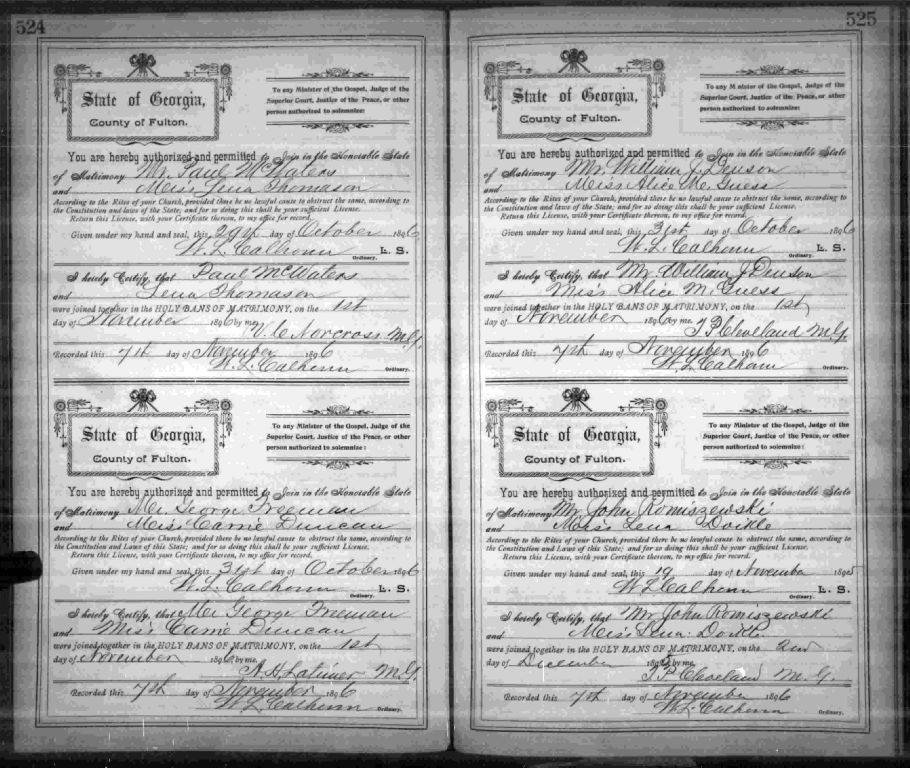 524
State of Georgia,
County of Fulton.
To any Minister of the Gospel, Judge of the
Superior Court, Justice of the Peace, or other
person authorized to solemnize:
You are hereby authorized and permitted to Join in the Honorable State
of Matrimony Mr. Paul McWaters
and Miss Lena Thomason
According to the Rites of your Church, provided there be no lawful cause to obstruct the same, according to
the Constitution and laws of the State; and for so doing this shall be your sufficient License.
Return this License, with your Certificate thereon, to my office for record.
Given under my hand and seal, this 29th day of October 1896
W. L. Calhoun L. S.
Ordinary.
I hereby Certify, that Paul McWaters
and Lena Thomason
were joined together in the HOLY BANS OF MATRIMONY, on the 1st
day of November 1896 by me.
V. C. Norcross M.G.
Recorded this 7th day of November 1896
W. L. Calhoun Ordinary.
State of Georgia,
County of Fulton.
To any Minister of the Gospel, Judge of the
Superior Court, Justice of the Peace, or other
person authorized to solemnize:
You are hereby authorized and permitted to Join in the Honorable State
of Matrimony Mr George Freeman
and Miss Carrie Duncan
According to the Rites of your Church, provided there be no lawful cause to obstruct the same, according to
the Constitution and Laws of this State; and for so doing this shall be your sufficient License.
Return this License, with your Certificate thereon, to my office for record.
Given under my hand and seal, this 31st day of October 1896
W. L. Calhoun L. S.
Ordinary.
I hereby Certify, that Mr George Freeman
and Miss Carrie Duncan
were joined together in the HOLY BANS OF MATRIMONY, on the 1st
day of November 1896 by me.
A. H. Latimer M.G.
Recorded this 7th day of November 1896
W. L. Calhoun Ordinary.
525
State of Georgia,
County of Fulton.
To any Minister of the Gospel, Judge of the
Superior Court, Justice of the Peace, or other
person authorized to solemnize:
You are hereby authorized and permitted to Join in the Honorable State
of Matrimony Mr. William J. Denson
and Miss Alice M. Guess
According to the Rites of your Church, provided there be no lawful cause to obstruct the same, according to
the Constitution and laws of the State; and for so doing this shall be your sufficient License.
Return this License, with your Certificate thereon, to my office for record.
Given under my hand and seal, this 31st day of October 1896
W. L. Calhoun L. S.
Ordinary.
I hereby Certify, that Mr. William J Denson
and Miss Alice M. Guess
were joined together in the HOLY BANS OF MATRIMONY, on the 1st
day of November 1896 by me.
T. P. Cleveland M.G.
Recorded this 7th day of November 1896
W. L. Calhoun Ordinary.
State of Georgia,
County of Fulton.
To any Minister of the Gospel, Judge of the
Superior Court, Justice of the Peace, or other
person authorized to solemnize:
You are hereby authorized and permitted to Join in the Honorable State
of Matrimony Mr John Romiszewski
and Miss Lena
According to the Rites of your Church, provided there be no lawful cause to obstruct the same, according to
the Constitution and Laws of this State; and for so doing this shall be your sufficient License.
Return this License, with your Certificate thereon, to my office for record.
Given under my hand and seal, this 19 day of November
W. L. Calhoun L. S.
Ordinary.
I hereby Certify, that Mr John Romiszewski
and Miss Lena
were joined together in the HOLY BANS OF MATRIMONY, on the 2nd
day of December by me.
T. P. Cleveland M. G.
Recorded this 7th day of November 1896
W. L. Calhoun Ordinary.